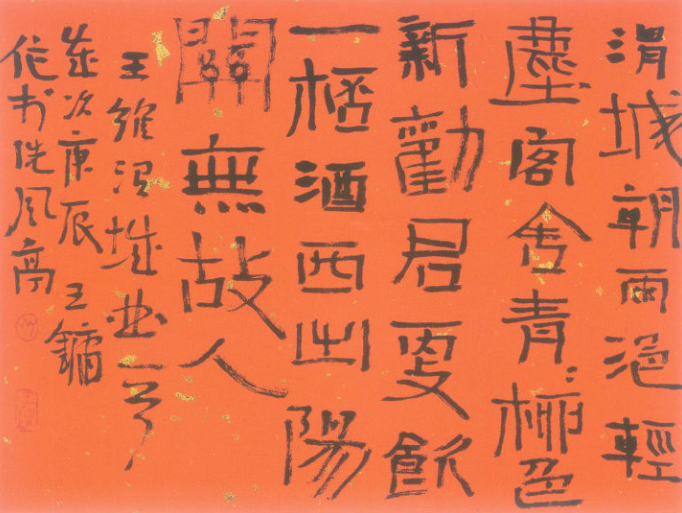 渭城朝雨浥輕
塵客舍青〻柳色
新勸君更飲
一桮酒西出陽
關無故人
王維渭城曲一首
歲次庚辰王鏞
作书風